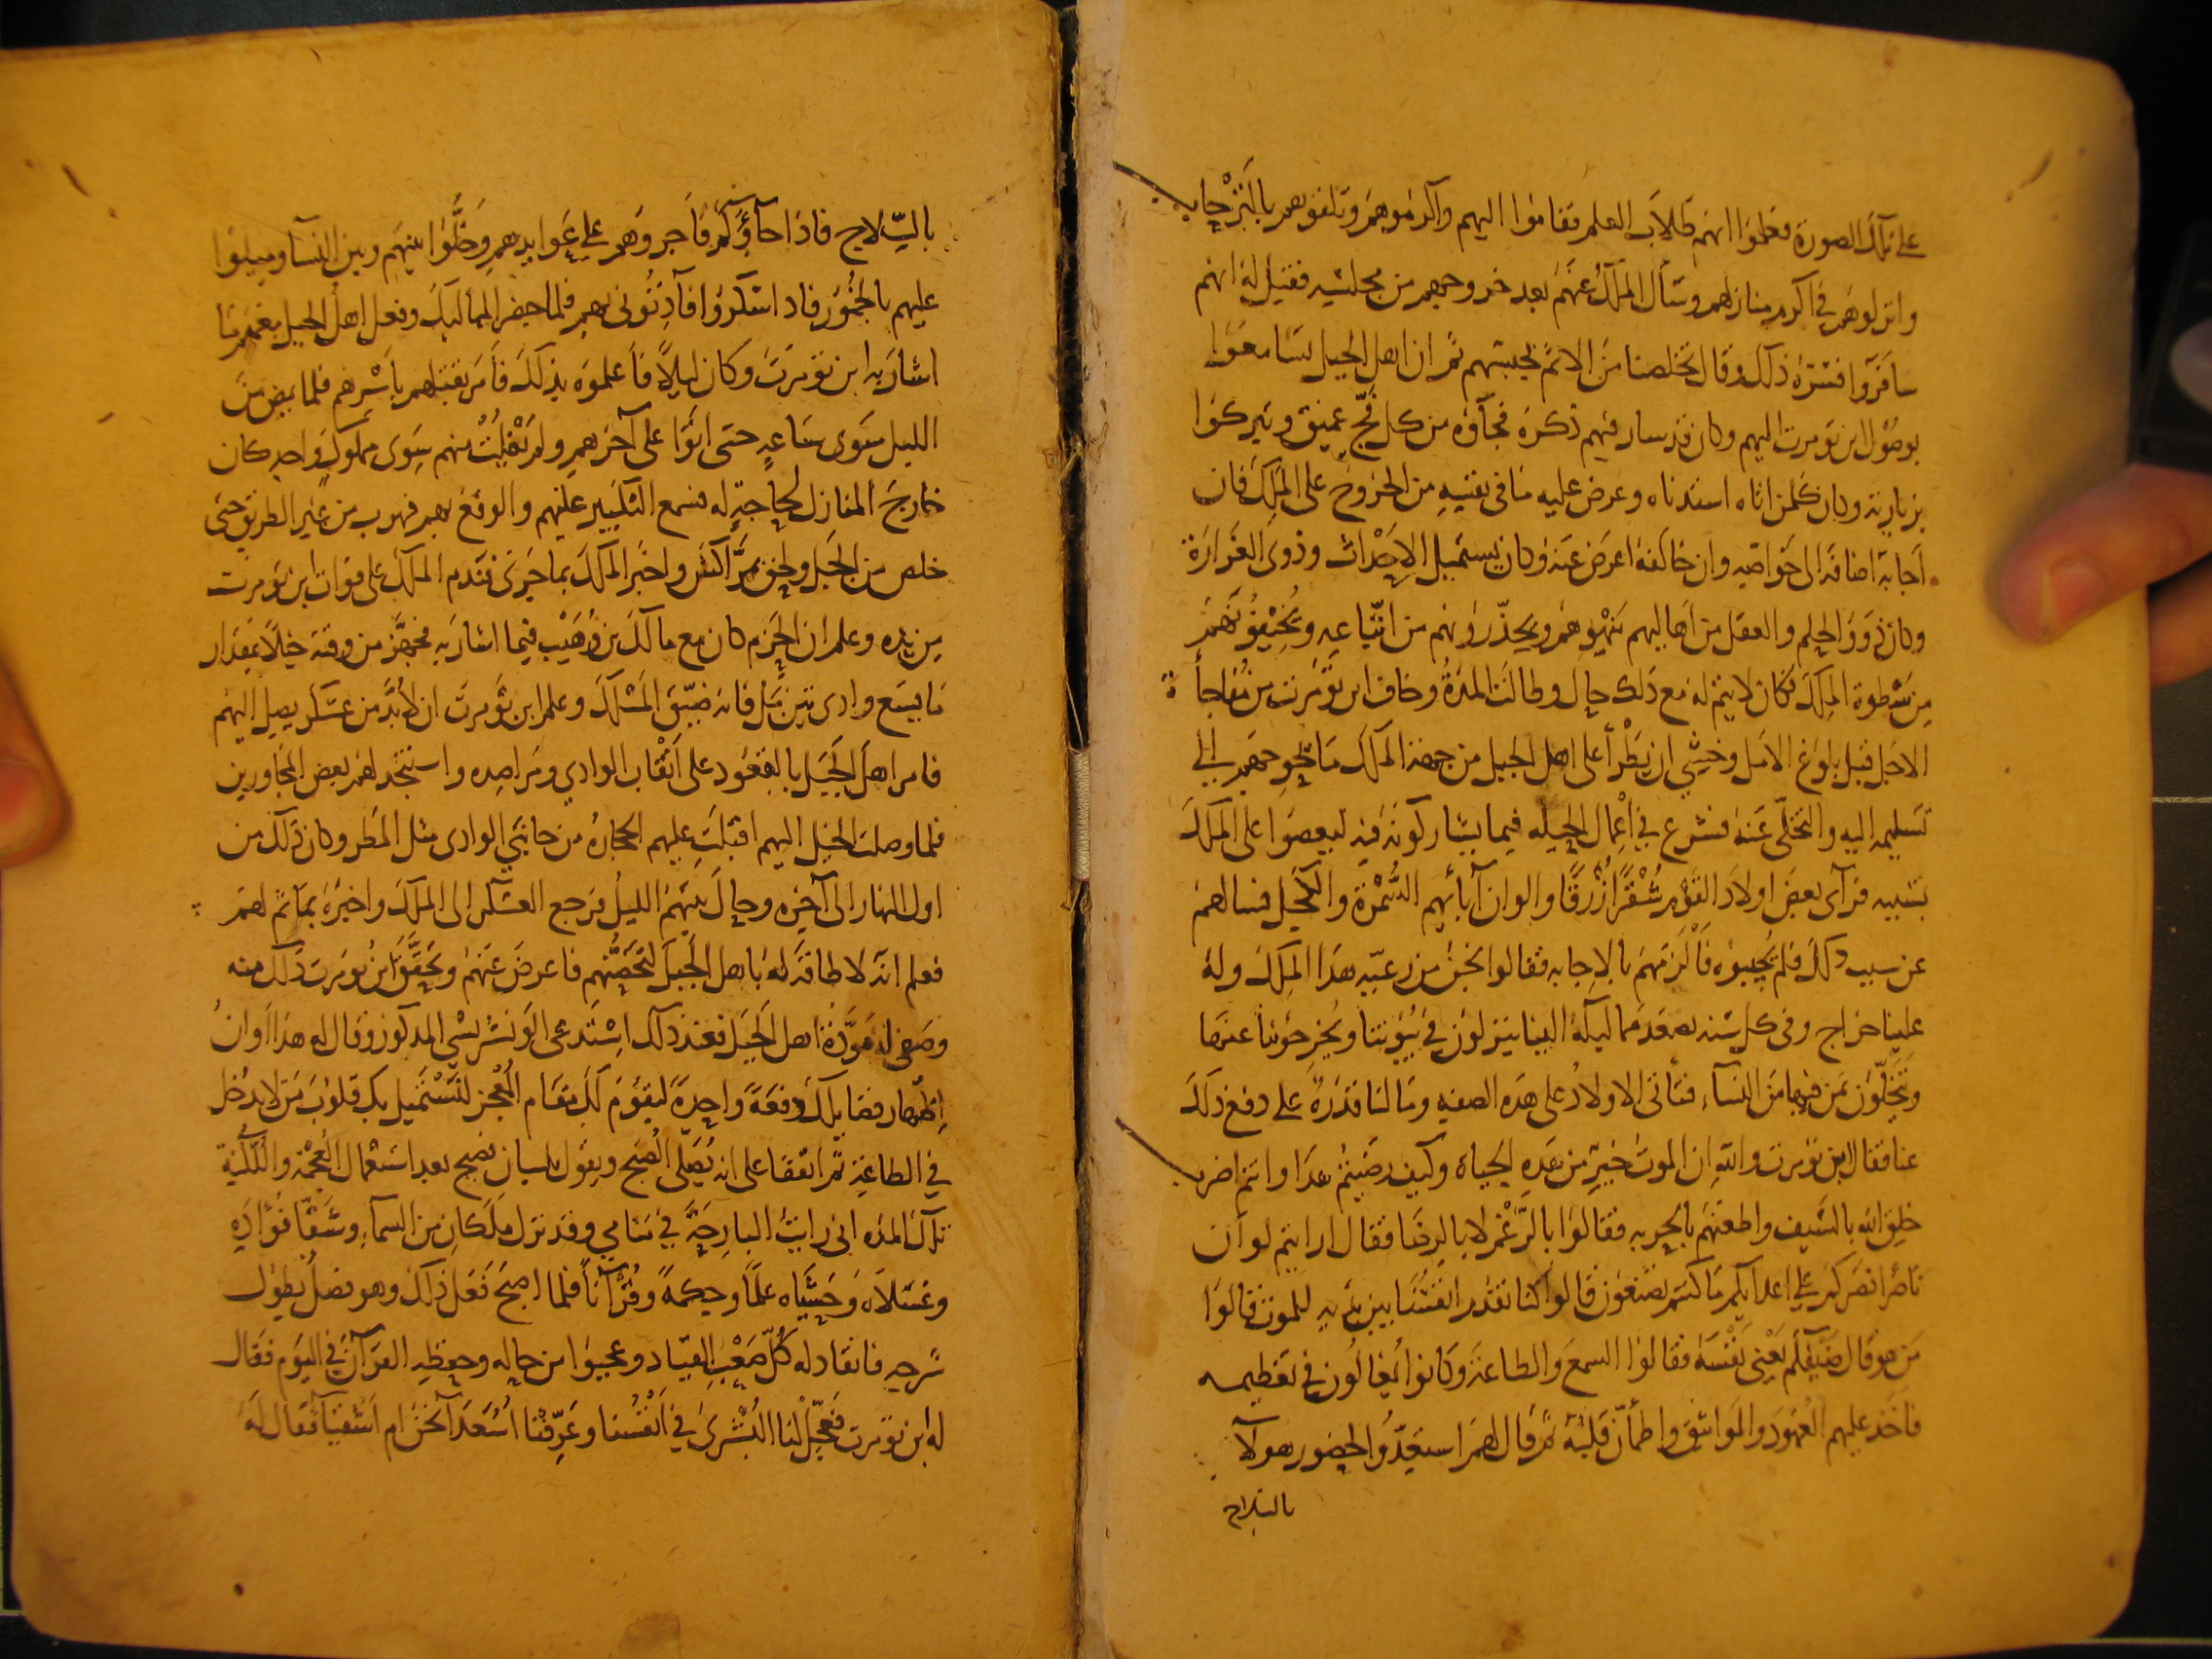 على تلك الصورة فعلموا انهم طلاب العلم فقاموا اليهم واكرموهم وتلقوهم بالترحاب
وانزلوهم في اكرم منازلهم وسأل الملك عنهم بعد خروجهم من مجلسه فقيل له انهم
سافروا فسره ذلك وقال تخلصنا من الاثم بحبسهم ثم ان اهل الجبل تسامعوا
بوصول ابن تومرت اليهم وكان قد سار فيهم ذكره فجآؤه من كل فج عميق وتبركوا
بزيارته وكان كلمن اتاه استدناه وعرض عليه ما في نفسه من الخروج على الملك فان
اجابه اضافه الى خواصه وان خالفه اعرض عنه وكان يستميل الاحداث وذوى الغرارة
وكان ذوو الحلم والعقل من اهاليهم ينهوهم ويحذرونهم من اتباعه ويخيفونهم
من سطوة الملك فكان لا يتم له مع ذلك حال وطالت المدة وخاف ابن تومرت من مفاجأة
الاجل قبل بلوغ الامل وخشي ان يطرأ على اهل الجبل من جهة الملك ما يحوجهم الى
تسليمه اليه والتخلى عنه فشرع في اعمال الحيلة فيما يشاركونه فيه ليعصوا على الملك
بسببه فرآى بعض اولاد القوم شقرا زرقا والوان آبائهم السمرة والكحل فسالهم
عن سبب ذلك فلم يجيبوه فالزمهم بالاجابه فقالوا نحن من رعيه هذا الملك وله
علينا خراج وفى كل سنه تصعد مماليكه الينا ينزلون في بيوتنا ويخرجوننا عنها
ويختلون بمن فيها من النسآء فتأتى الاولاد على هذه الصفه وما لنا قدرة على دفع ذلك
عنا فقال ابن تومرت والله ان الموت خير من هذه الحياة وكيف رضيتم بهذا وانتم اضرب
خلق الله بالسيف واطعنهم بالحربه فقالوا بالرغم لا بالرضا فقال ارايتم لو ان
ناصرا نصركم على اعدائكم ما كنتم تصنعون قالوا كنا نقدم انفسنا بين يديه للموت قالوا
من هو قال ضيفكم يعنى نفسه فقالوا السمع والطاعة وكانوا يغالون في تعظيمه
فاخذ عليهم العهود والمواثيق واطمأن قلبه ثم قال لهم استعدوا لحضور هولآء
بالسلاح
بالسلاح فاذا جآؤكم فاجروهم على عوايدهم وخلوا بينهم وبين النسآ وميلوا
عليهم بالخمور فاذا سكروا فآذنونى بهم فلما حضر المماليك وفعل اهل الجبل بهم ما
اشار به ابن تومرت وكان ليلا فأعلموه بذلك فأمر بقتلهم بأسرهم فلم يمض من
الليل سوى ساعه حتى اتوا على آخرهم ولم يفلت منهم سوى مملوك واحد كان
خارج المنازل لحاجة له فسمع التكبير عليهم والوقع بهم فهرب من غير الطريق حتى
خلص من الجبل ولحق بمراكش واخبر الملك بما جرى فندم الملك على فوات ابن تومرت
من يده وعلم ان الحزم كان مع مالك بن وهيب فيما اشار به فجهز من وقته خيلا بمقدار
ما يسع وادى تين مل فانه ضيق المسلك وعلم ابن تومرت ان لا بد من عسكر يصل اليهم
فامر اهل الجبل بالقعود على انقاب الوادي ومراصده واستنجد لهم بعض المجاورين
فلما وصلت الخيل اليهم اقبلت عليهم الحجارة من جانبي الوادى مثل المطر وكان ذلك من
اول النهار الى آخره وحال بينهم الليل فرجع العسكر الى الملك واخبره بما تم لهم
فعلم انه لا طاقة له باهل الجبل لتحصنهم فاعرض عنهم وتحقق ابن تومرت ذلك منه
وصفى له مودة اهل الجبل فعند ذلك استدعى الونشريشي المذكور وقال له هذا اوان
اظهار فضايلك دفعة واحدة ليقوم لك مقام المعجز لنستميل بك قلوب من لا يدخل
في الطاعة ثم اتفقا على انه يصلى الصبح ويقول بلسان فصيح بعد استعمال العجمة واللكنة
تلك المده انى رايت البارحة في منامي وقد نزل ملكان من السمآء وشقا فؤاديه
وغسلاه وحشياه علما وحكمة وقرآنا فلما اصبح فعل ذلك وهو فصل يطول
شرحه فانقاد له كل صعب القياد وعجبوا من حاله وحفظه القرآن في اليوم فقال
له ابن تومرت فعجل لنا البشرى في انفسنا وعرفنا اسعدآ نحن ام اشقيآ فقال له